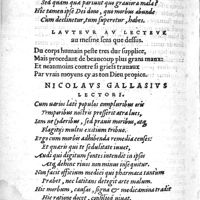 Sed quam quæ pariunt quæ grauiora mala?
His tamen ipse Dei dono, quæ morbus abundè
Cum declinetur, tum superetur, habes.
L'AVTEVR AV LECTEVR
au mesme sens que dessus.
Du corps humain peste tire dur supplice,
Mais procedant de beaucoup plus grans maux:
Et neantmoins contre si griefs trauaux
Par vrais moyens cy as ton Dieu propice.
NICOLAVS GALLASIVS
LECTORI.
Cum varios lati populos compluribus oris
Temporibus nostris presserit atra lues,
Iam ne syderibus, sed prauis moribus, atq;
Flagitijs multis exitium tribue.
Ergo cum morbo adhibenda remedia censes:
Et quæris quî te sedulitate iuuet,
Audi quî digitum fontes intendit in ipsos
Atq; dehinc riuos non minus insequitur.
Non facit officium medici qui pharmaca tantùm
Præbet, nec latitans detegit arte malum.
Hic morbum, causas, signa & medicamina tradit
His ratione docet, conuenit uti.